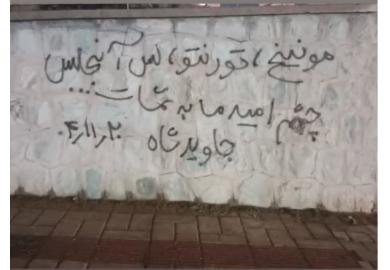 مونیخ، تورنتو، لس آنجلس
چشم امید ما به شماست...
جاوید شاه ۴۰۴٫۱۱٫۲۰